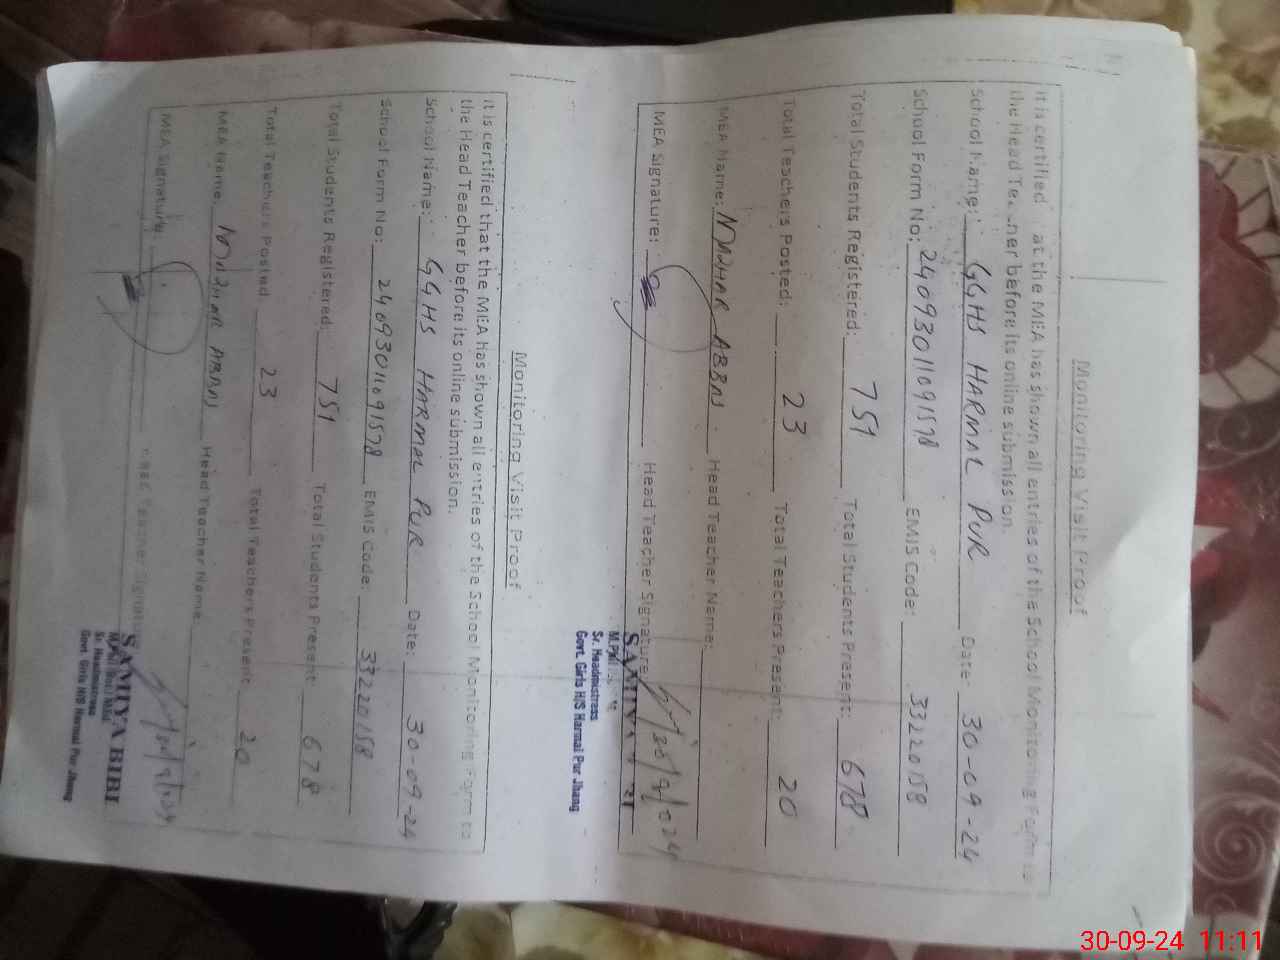 Monitoring Visit Proof
It is certified at the MEA has shown all entries of the School Monitoring Form to
the Head Teacher before its online submission.
School Name: GGHS HARMAL PUR Date: 30-09-24
School Form No: 24093011091578 EMIS Code: 33220158
Total Students Registered: 751 Total Students Present: 678
Total Teachers Posted: 23 Total Teachers Present: 20
MEA Name: MAZHAR ABBAS Head Teacher Name:
MEA Signature: Head Teacher Signature
SAMIYA
M.Phil
Sr. Headmistress
Govt. Girls H/S Harmal Pur Jhang
Monitoring Visit Proof
It is certified that the MEA has shown all entries of the School Monitoring Form to
the Head Teacher before its online submission.
School Name: GGHS HARMAL PUR Date: 30-09-24
School Form No: 24093011091578 EMIS Code: 33220158
Total Students Registered: 751 Total Students Present 678
Total Teachers Posted 23 Total Teachers Present 20
MEA Name: MAZHAR ABBAS Head Teacher Name
MEA Signature: Head Teacher Signature
SAMIYA BIBI
Sr. Headmistress
Govt. Girls H/S Harmal Pur Jhang
30-09-24 11:11